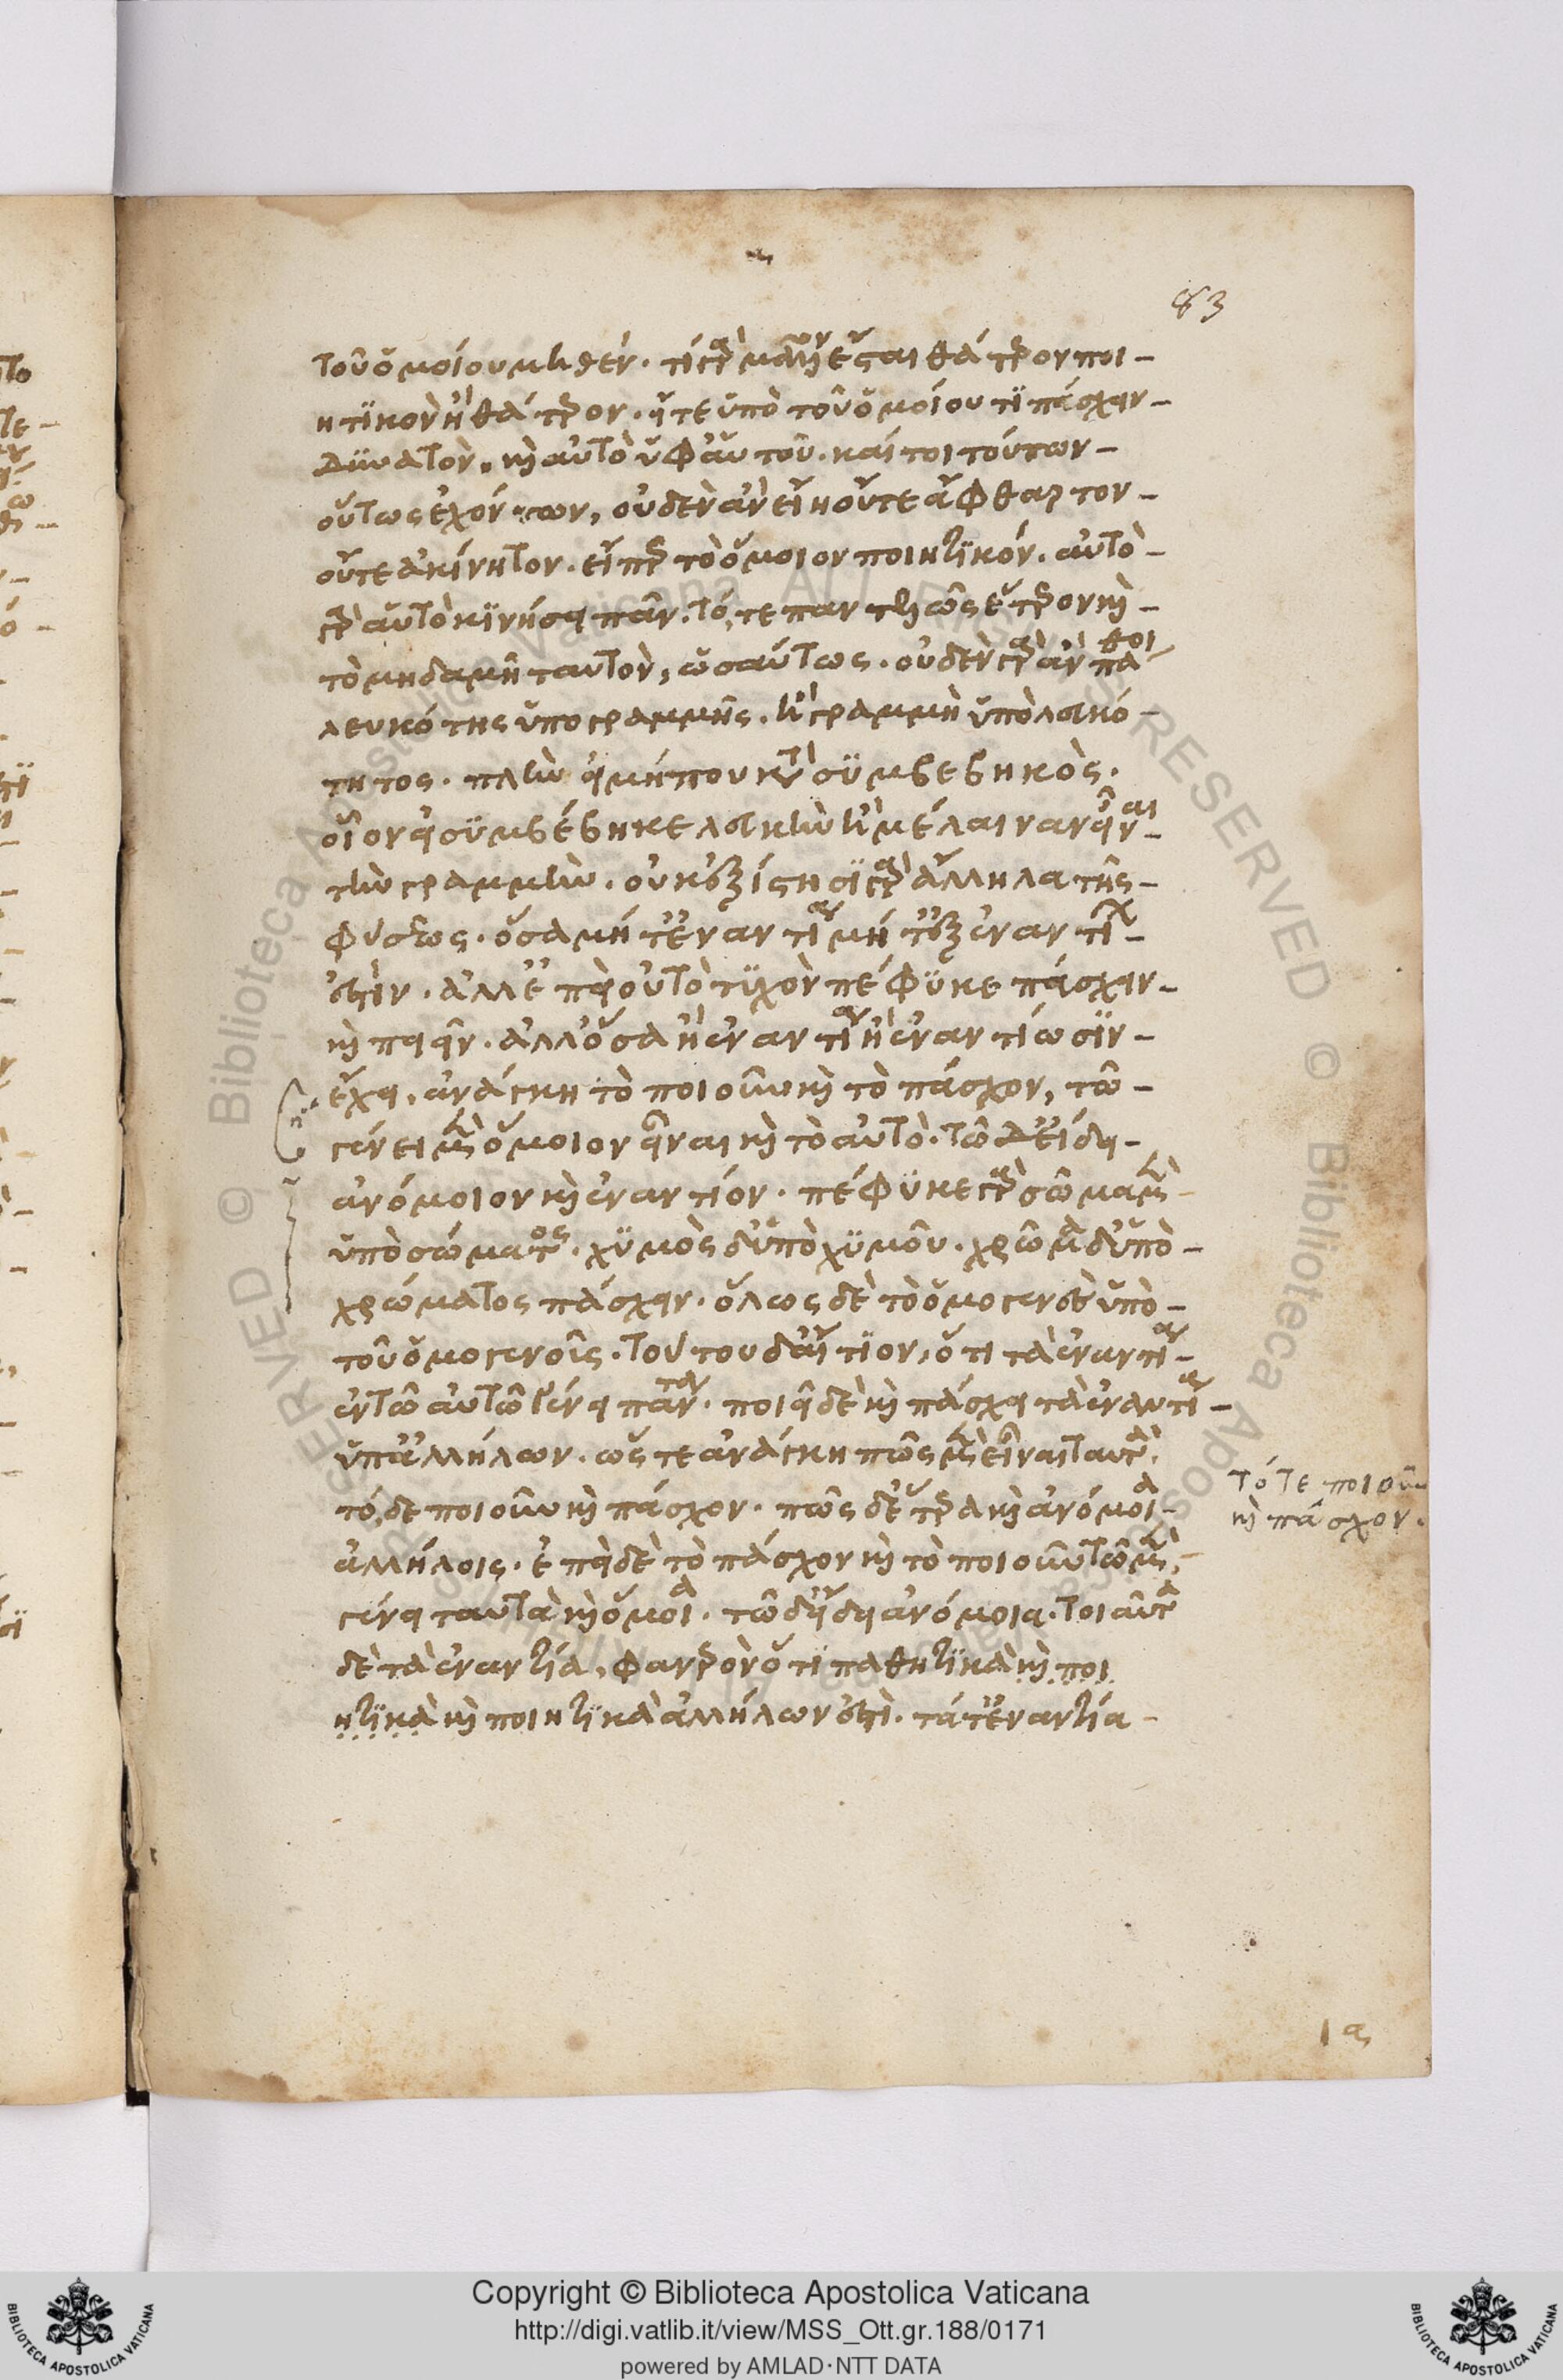 83
τοῦ ὁμοίου μηθέν· τί γὰρ μᾶλλον ἔσται θάτερον ποι-
ητικὸν ἢ θάτερον· εἴτε ὑπὸ τοῦ ὁμοίου τι πάσχειν-
δυνατόν· καὶ αὐτὸ ὑφ' αὑτοῦ· καίτοι τούτων-
οὕτως ἐχόντων, οὐδὲν ἂν εἴη οὔτε ἄφθαρτον-
οὔτε ἀκίνητον· εἴπερ τὸ ὅμοιον ποιητικόν· αὐτὸ-
γὰρ αὑτὸ κινήσει πᾶν· τό, τε παντελῶς ἕτερον καὶ-
τὸ μηδαμῆ ταυτὸν, ὡσαύτως· οὐδὲν γὰρ ἂν πάθοι
λευκότης ὑπο γραμμῆς· ἢ γραμμὴ ὑπὸ λευκό-
τητος· πλὴν εἰ μή που κατὰ συμβεβηκός·
οἷον εἰ συμβέβηκε λευκὴν ἢ μέλαιναν εἶναι-
τὴν γραμμήν· οὐκ ἐξίστησι γὰρ ἄλληλα τῆς-
φύσεως· ὅσα μήτ' ἐναντία μήτ' ἐξ ἐναντίων-
ἐστίν· ἀλλ' ἐπεὶ οὐ τὸ τυχὸν πέφυκε πάσχειν-
καὶ ποιεῖν· ἀλλ' ὅσα ἢ ἐναντία ἢ ἐναντίωσιν-
ἔχει, ἀνάγκη τὸ ποιοῦν καὶ τὸ πάσχον, τῶ-
γένει μὲν ὅμοιον εἶναι καὶ τὸ αὐτό· τῶ δ' εἴδει-
ἀνόμοιον καὶ ἐναντίον· πέφυκε γὰρ σῶμα μὲν-
ὑπὸ σώματος· χυμὸς δ' ὑπὸ χυμοῦ· χρῶμα δ' ὑπὸ-
χρώματος πάσχειν· ὅλως δὲ τὸ ὁμογενὲς ὑπὸ-
τοῦ ὁμογενοῦς· τούτου δ' αἴτιον, ὅτι τὰ ἐναντία-
ἐν τῶ αὐτῶ γένει πάντα· ποιεῖ δὲ καὶ πάσχει τὰ ἐναντία-
ὑπ' ἀλλήλων· ὥστε ἀνάγκη πῶς μὲν εἶναι ταυτὰ·
τό, δε ποιοῦν καὶ πάσχον· πῶς δ' ἕτερα καὶ ἀνόμοια-
ἀλλήλοις· ἐπεὶ δὲ τὸ πάσχον καὶ τὸ ποιοῦν τῶ μὲν,
γένει ταυτὰ καὶ ὅμοια· τῶ δ' εἴδει ἀνόμοια· τοιαῦτα
δὲ τὰ ἐναντία, φανερὸν ὅτι παθητικὰ καὶ ποι
ητικὰ καὶ ποιητικὰ ἀλλήλων ἐστὶ· τά τ' ἐναντία-
τό τε ποιοῦν
καὶ πάσχον·
Copyright © Biblioteca Apostolica Vaticana
http://digi.vatlib.it/view/MSS_Ott.gr.188/0171
powered by AMLAD·NTT DATA
BIBLIOTECA APOSTOLICA VATICANA
BIBLIOTECA APOSTOLICA VATICANA